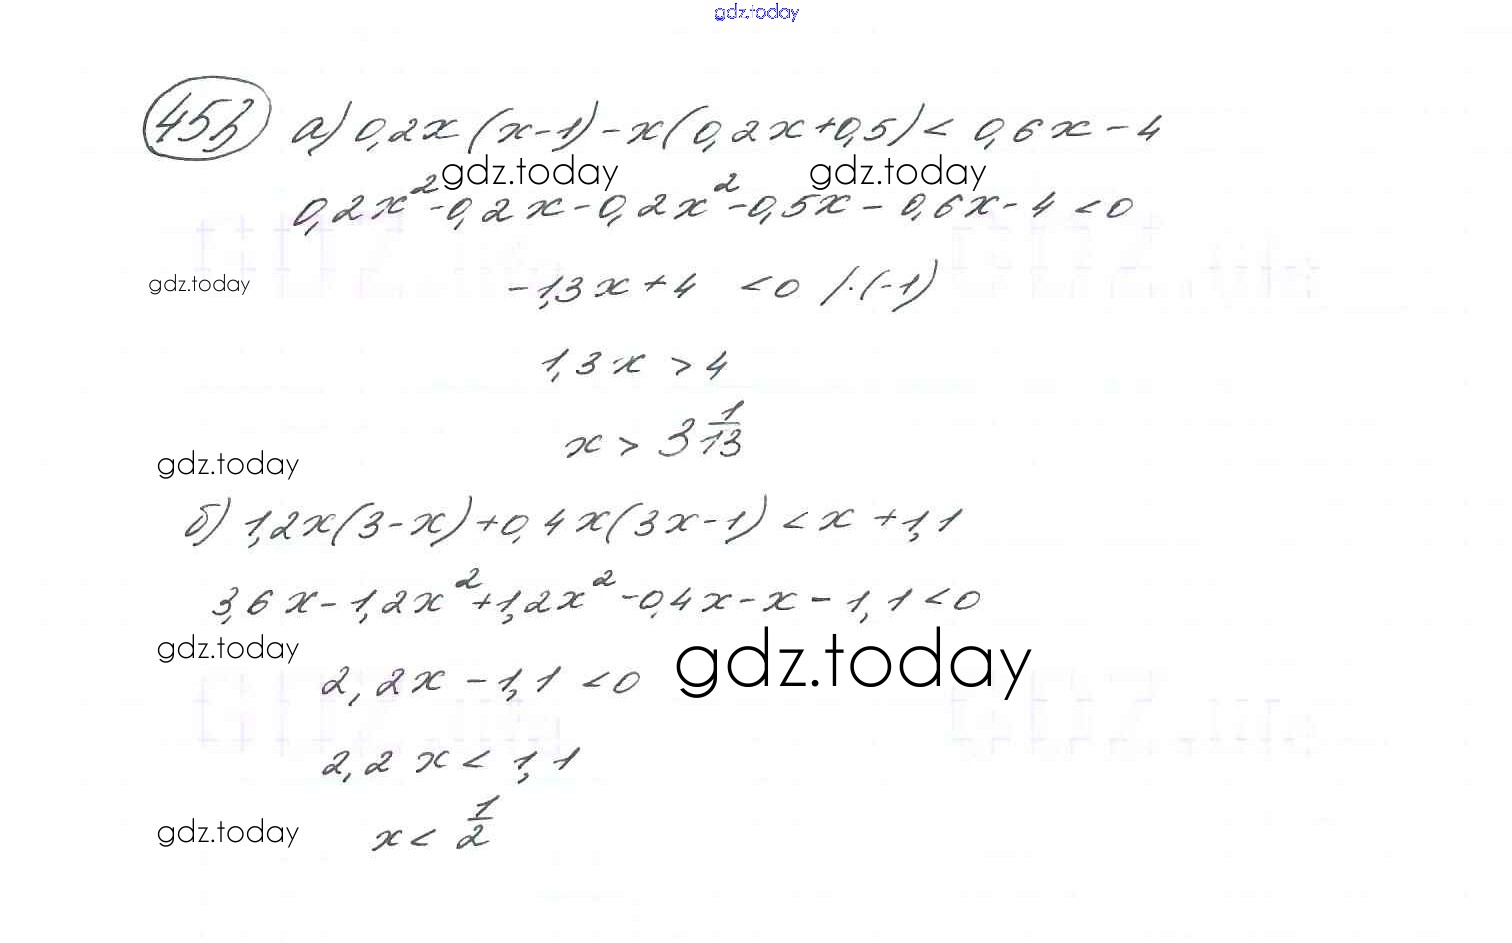 gdz.today
453 а) 0,2x (x-1) - x(0,2x+0,5) < 0,6x - 4
gdz.today gdz.today
0,2x² - 0,2x - 0,2x² - 0,5x - 0,6x - 4 < 0
gdz.today
-1,3x + 4 < 0 /·(-1)
1,3x > 4
x > 3 1/13
gdz.today
б) 1,2x(3-x) + 0,4x(3x-1) < x + 1,1
3,6x - 1,2x² + 1,2x² - 0,4x - x - 1,1 < 0
gdz.today
gdz.today
2,2x - 1,1 < 0
2,2x < 1,1
gdz.today
x < 1/2